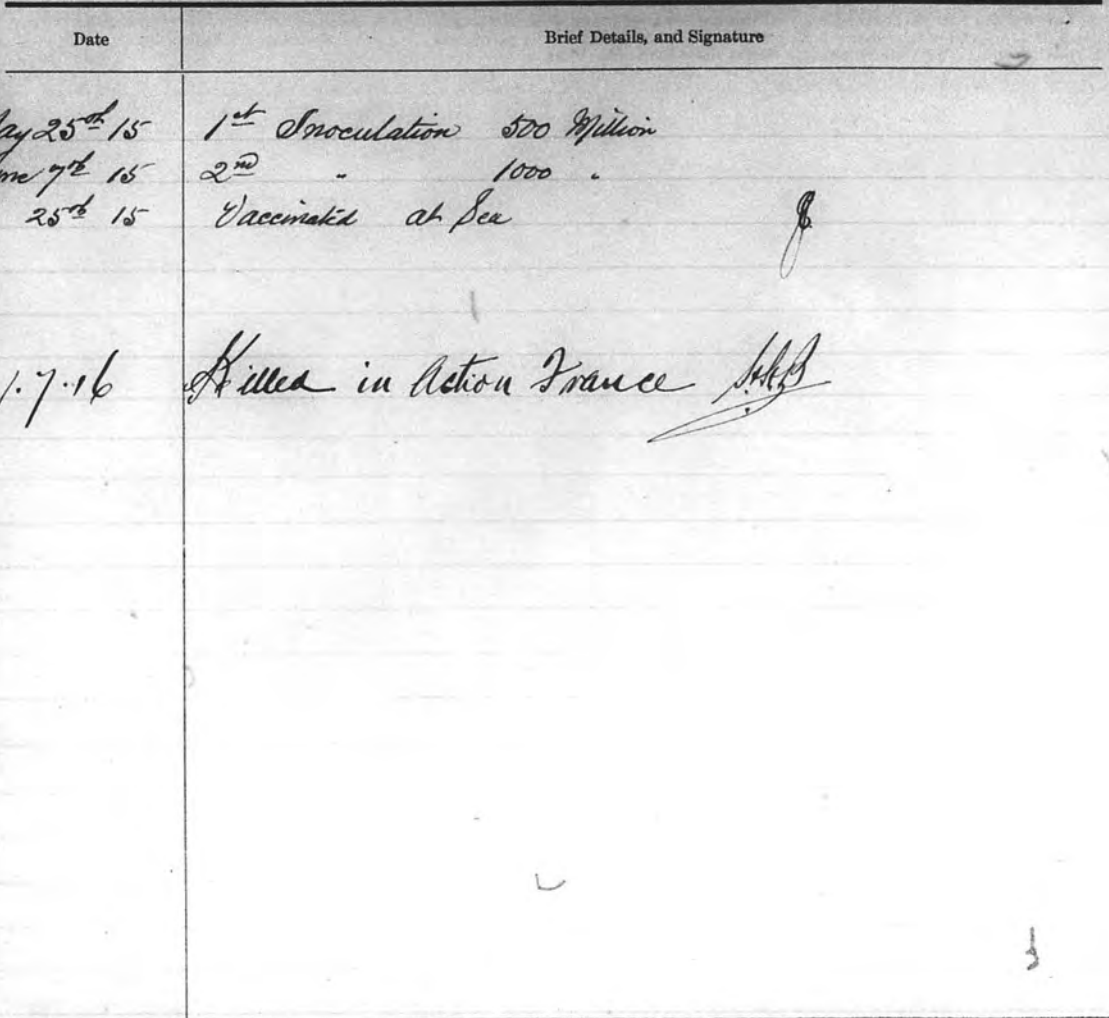 Date Brief Details, and Signature
ay 25th 15 1st Inoculation 500 Million
ne 7th 15 2nd " 1000 "
25th 15 Vaccinated at Sea
1.7.16 Killed in Action France